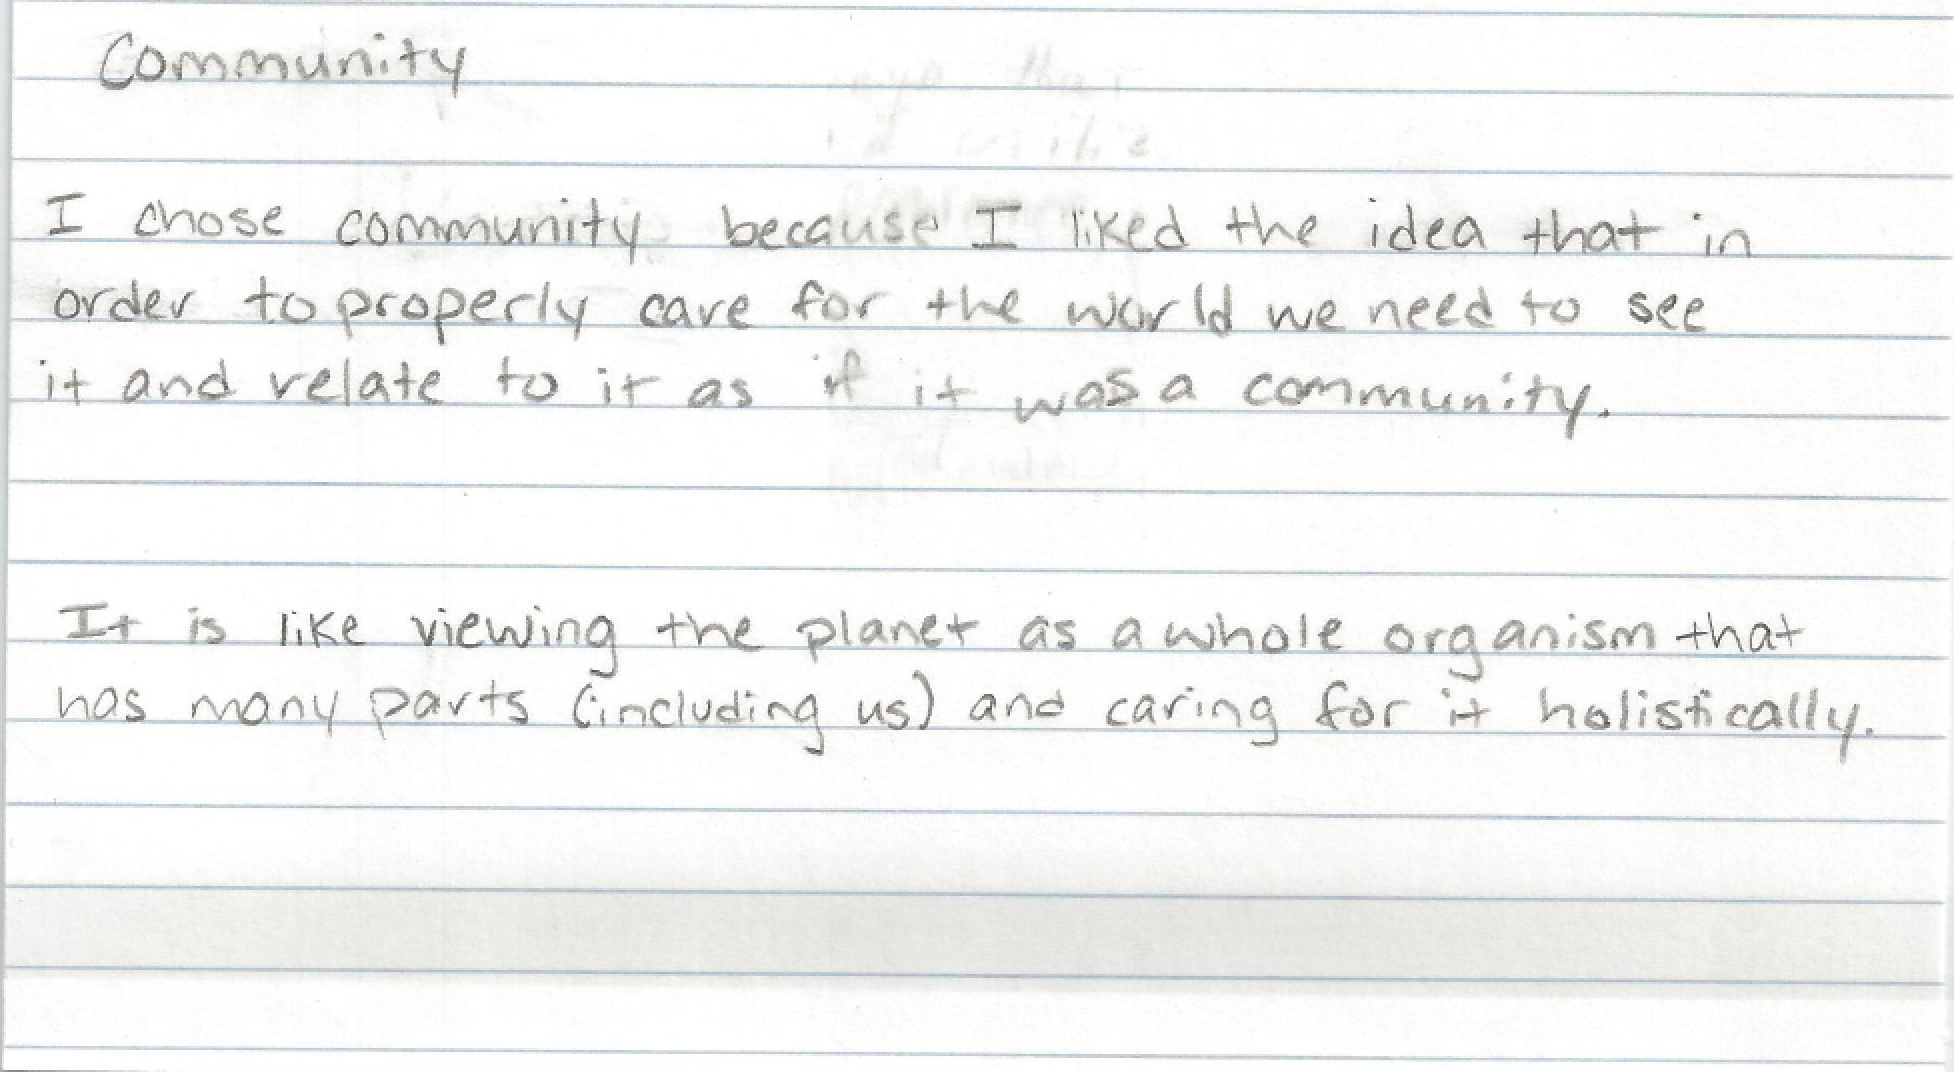 Community
I chose community because I liked the idea that in
order to properly care for the world we need to see
it and relate to it as if it was a community.
It is like viewing the planet as a whole organism that
has many parts (including us) and caring for it holistically.